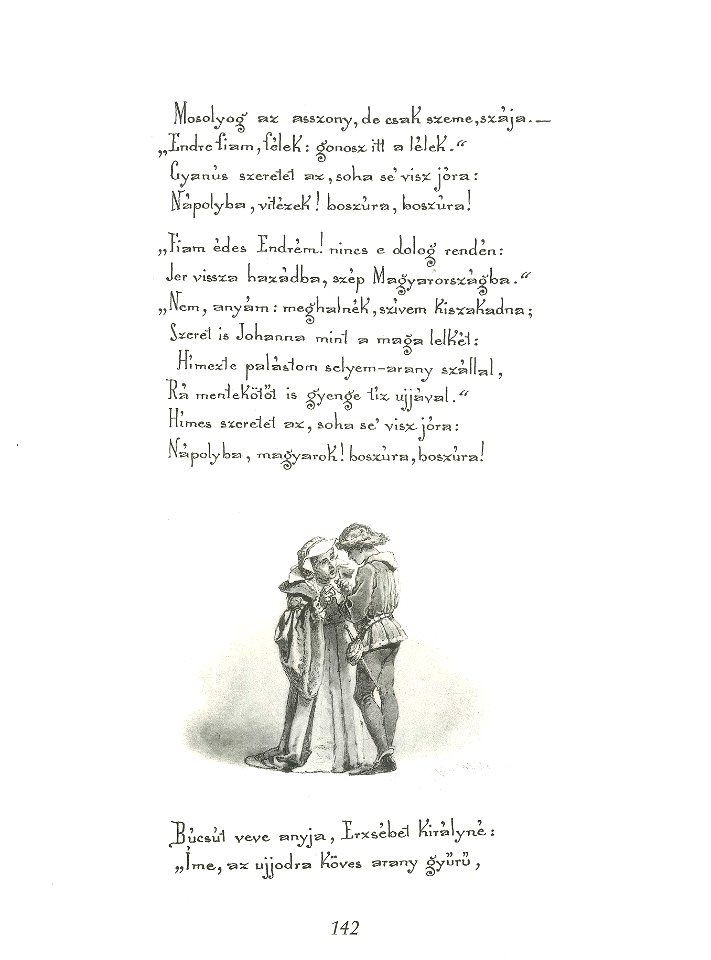 Mosolyog az asszony, de csak szeme, szája. —
„Endre fiam, félek: gonosz itt a lélek.“
Gyanús szeretet az, soha se' visz jóra:
Nápolyba, vitézek! boszúra, boszúra!
„Fiam édes Endrém! nincs e dolog rendén:
Jer vissza hazádba, szép Magyarországba.“
„Nem, anyám: meghalnék, szívem kiszakadna;
Szeret is Johanna mint a maga lelkét:
Hímezte palástom selyem-arany szállal,
Rá mentekötőt is gyenge tíz ujjával.“
Hímes szeretet az, soha se' visz jóra:
Nápolyba, magyarok! boszúra, boszúra!
Búcsút veve anyja, Erzsébet királyné:
„Íme, az ujjodra köves arany gyűrű,
142